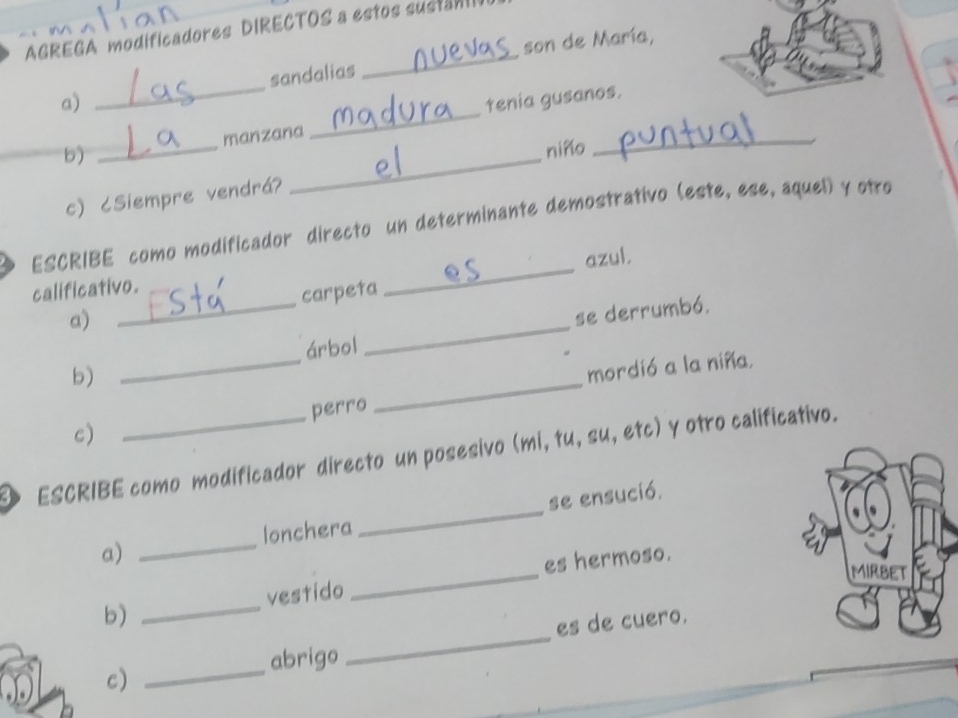 AGREGA modificadores DIRECTOS a estos
a) Las sandalias nuevas son de María,
b) La manzana madura tenía gusanos.
c) ¿Siempre vendrá? el niño puntual
ESCRIBE como modificador directo un determinante demostrativo (este, ese, aquel) y otro
calificativo.
a) Está carpeta es azul.
b) ____ árbol ____ se derrumbó.
c) ____ perro ____ mordió a la niña.
3 ESCRIBE como modificador directo un posesivo (mi, tu, su, etc) y otro calificativo.
a) ____ lonchera ____ se ensució.
b) ____ vestido ____ es hermoso.
c) ____ abrigo ____ es de cuero.
MIRBET